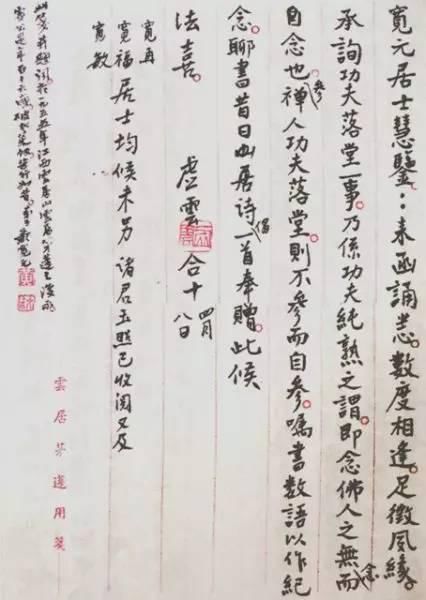 寬元居士慧鑒：來函誦悉。數度相逢。足徵夙緣。
承詢功夫落堂一事。乃係功夫純熟之謂。即念佛人之無念而
自念也。參禪人功夫落堂。則不參而自參。囑書數語以作紀
念。聊書昔日山居詩偈一首奉贈。此候
法喜。 虛雲 合十 四月八日
寬再
寬福 居士均候未另 諸君玉照已收閱又及
寬敏
一九五五年江西雲居山
雲居茅蓬用箋